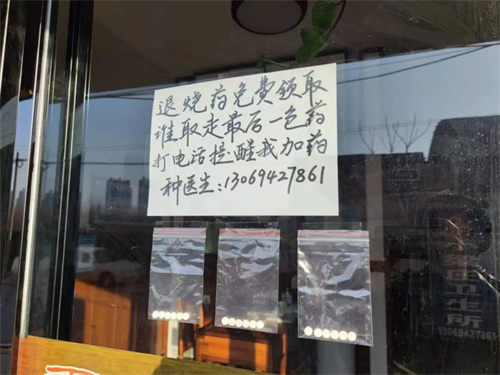 退烧药免费领取
谁取走最后一包药
打电话提醒我加药
种医生:13069427861
卫生所
13069427861